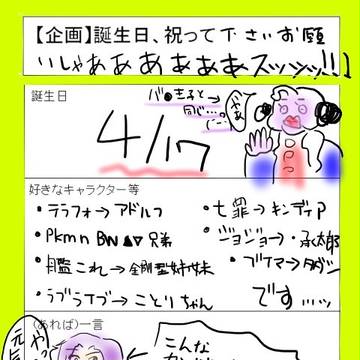 【企画】誕生日、祝って下さいお願
いしゃぁあああああスッッッ!!】
誕生日
4/17
同じ…。
好きなキャラクター等
・テラフォ→アドルフ
・七罪→キンディP
・Pkmn BW▲▼兄弟
・ジョジョ→承太郎
・艦これ→金剛型姉妹
・ラブライブ→ことりちゃん
です…ッ
(あれば)一言
こんな